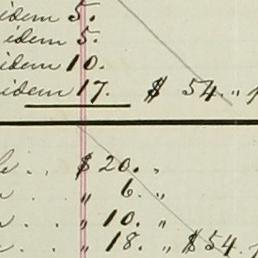 idem 5.
idem 5.
idem 10.
idem 17. $ 54. "
$ 20. "
" 6. "
" 10. "
" 18. " $54.